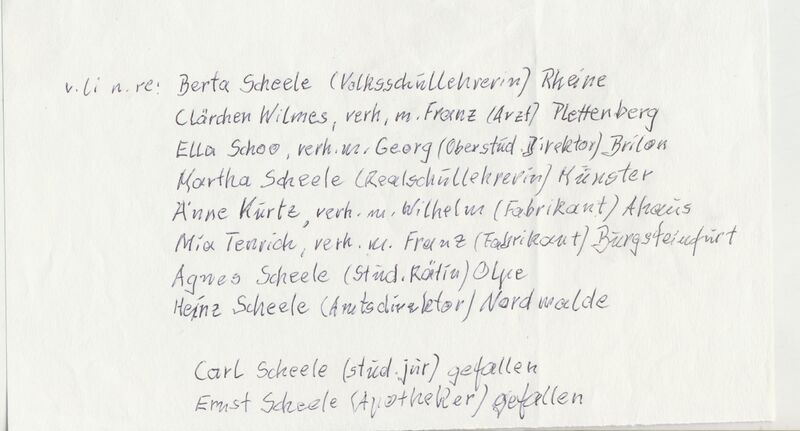 v. li n. re: Berta Scheele (Volksschullehrerin) Rheine
Clärchen Wilmes, verh. m. Franz (Arzt) Plettenberg
Ella Schoo, verh. m. Georg (Oberstud. Direktor) Brilon
Martha Scheele (Realschullehrerin) Münster
Änne Kurtz, verh. m. Wilhelm (Fabrikant) Ahaus
Mia Tenrich, verh. m. Franz (Fabrikant) Burgsteinfurt
Agnes Scheele (Stud. Rätin) Olpe
Heinz Scheele (Amtsdirektor) Nordwalde
Carl Scheele (stud. jur) gefallen
Ernst Scheele (Apotheker) gefallen